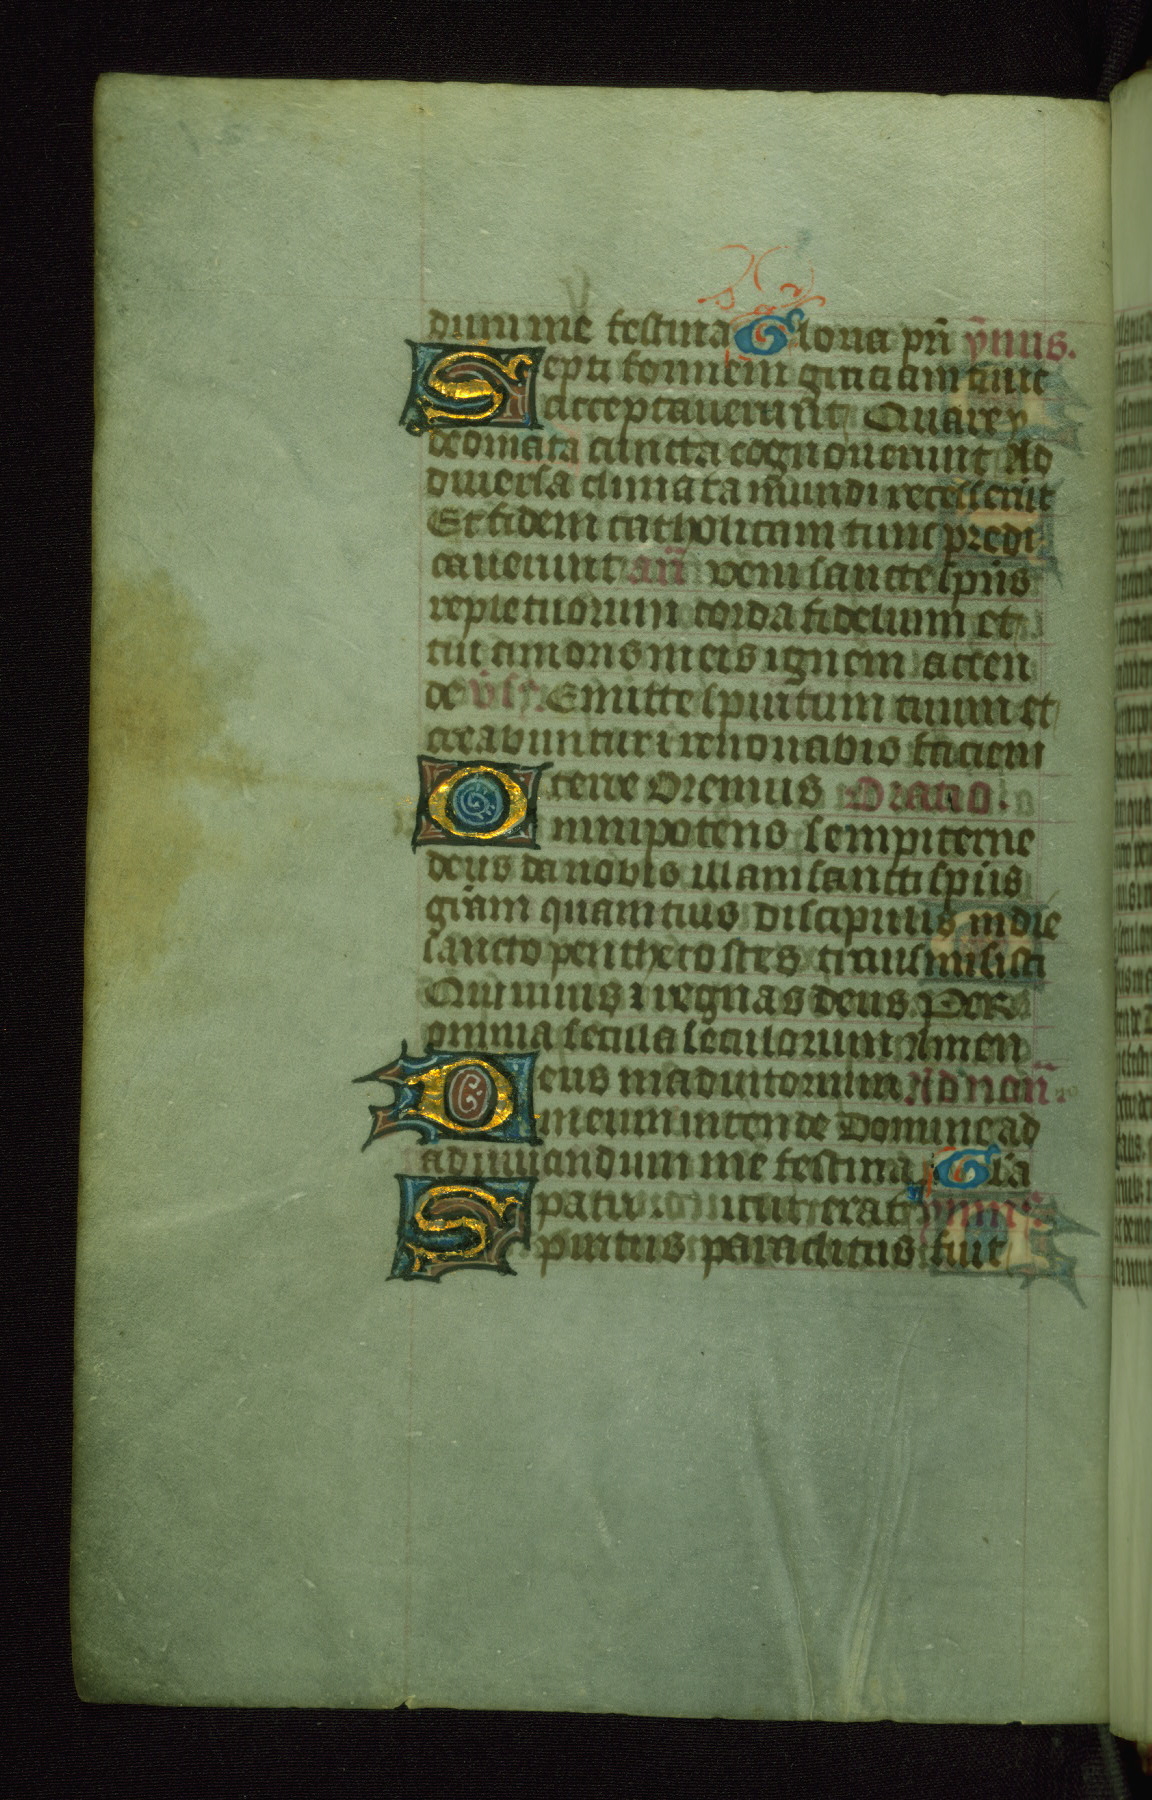 dum me festina Gloria pri ymus.
Septi formem gratiam tunc
acceptauerunt Quare y
deomata cuncta cognouerunt Ad
diuersa climata mundi recesserūt
Et fidem catholicam tunc predi
cauerunt añ veni sancte spūs
reple tuorum corda fidelium et
tui amoris in eis ignem accen
de v̄s Emitte spiritum tuum et
creabuntur ⁊ renouabis faciem
terre Oremus Oratio.
Omnipotens sempiterne
deus da nobis illam sancti spūs
grām quam tuis discipulis in die
sancto penthecostes transmisisti
Qui uiuis ⁊ regnas deus Per
omnia secula seculorum Amen
Deus in adiutorium Ad nonā.
meum intende Domine ad
adiuuandum me festina Gla
patri sicut erat ymnus
Spiritus paraclitus fuit